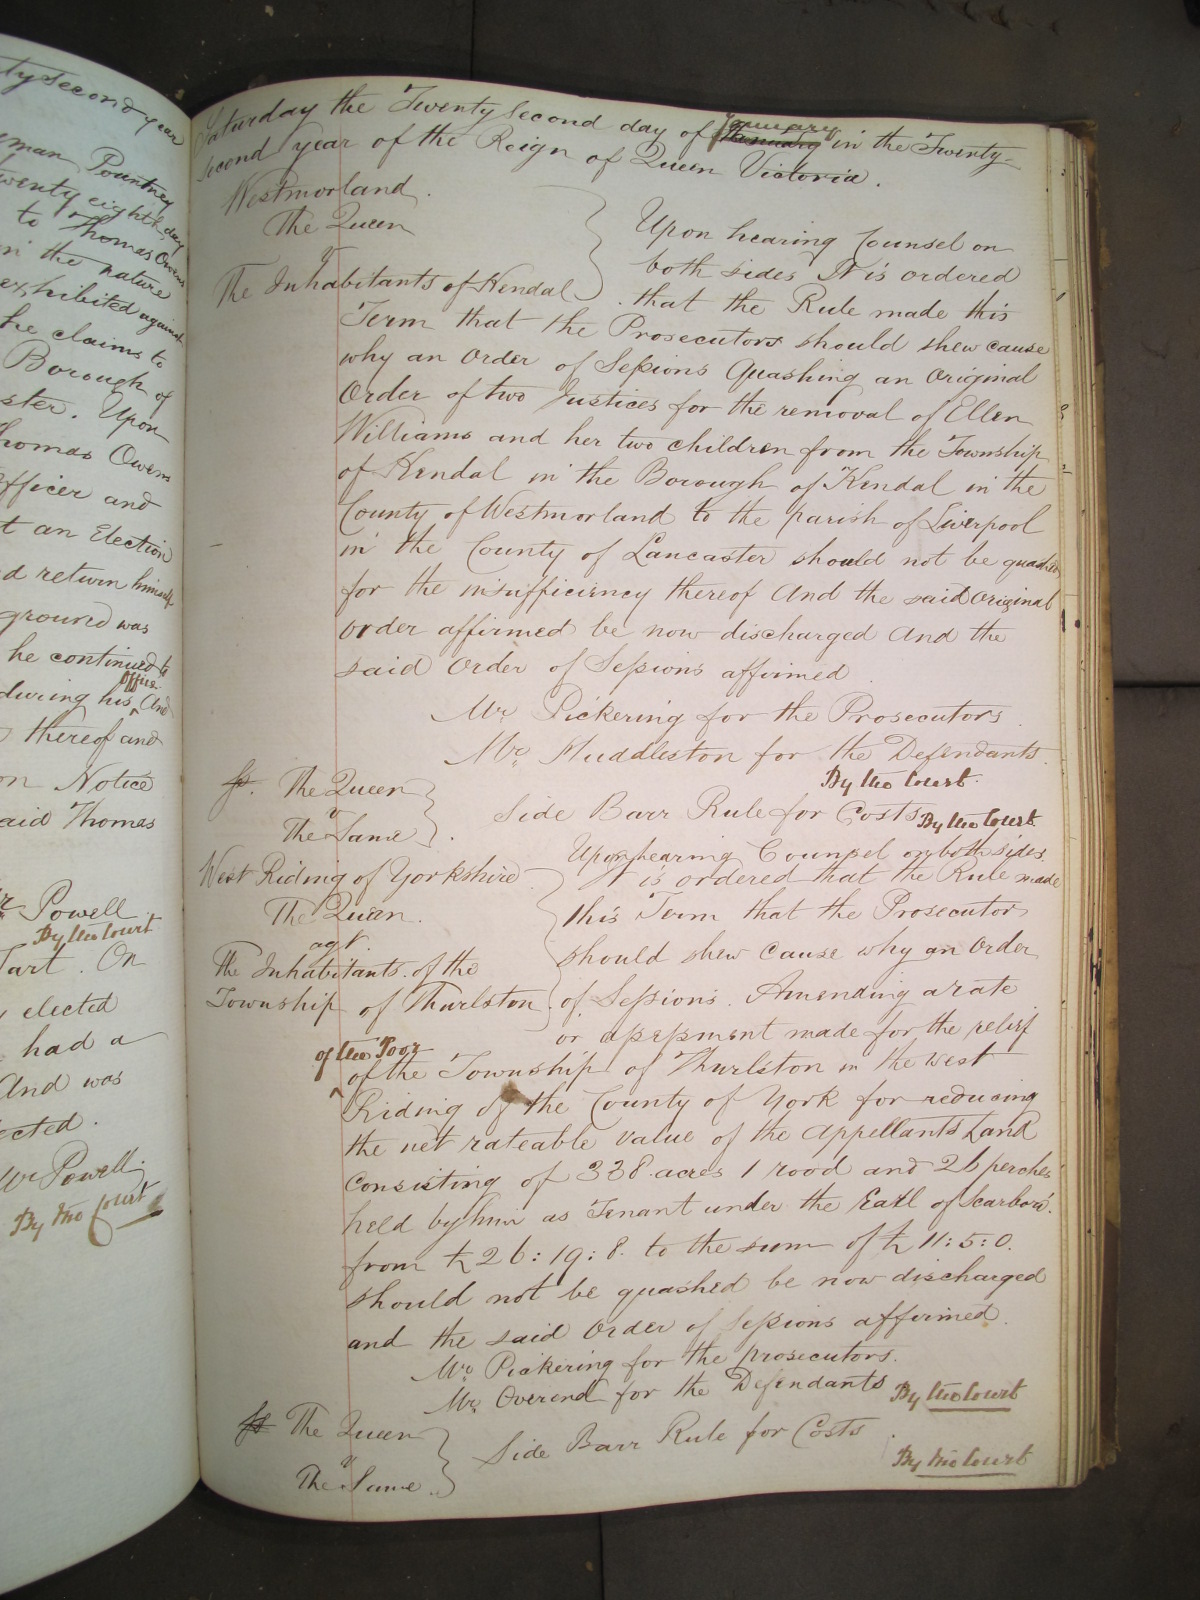 ty second year
man Pountney
twenty eighth day
to Thomas Owens
in the nature
exhibited against
he claims to
Borough of
ster. Upon
Thomas Owens
Officer and
t an Election
d return himself
ground was
he continued to
office
during his And
thereof and
on Notice
aid Thomas
Mr Powell
By the Court
art. On
elected
had a
And was
ected.
Mr Powell.
By the Court
Saturday the Twenty Second day of January January in the Twenty-
second year of the Reign of Queen Victoria.
Westmorland.
The Queen
v
The Inhabitants of Kendal
Upon hearing Counsel on
both sides It is ordered
that the Rule made this
Term that the Prosecutors should shew cause
why an Order of Sessions Quashing an Original
Order of two Justices for the removal of Ellen
Williams and her two children from the Township
of Kendal in the Borough of Kendal in the
County of Westmorland to the parish of Liverpool
in the County of Lancaster should not be quashed
for the insufficiency thereof And the said Original
order affirmed be now discharged And the
said Order of Sessions affirmed
Mr Pickering for the Prosecutors.
Mr Huddleston for the Defendants.
By the Court.
The Queen
v
The Same
Side Barr Rule for Costs By the Court
West Riding of Yorkshire
The Queen.
agt.
The Inhabitants of the
Township of Thurlston
Upon hearing Counsel on both sides.
It is ordered that the Rule made
this Term that the Prosecutors
should shew cause why an Order
of Sessions. Amending a rate
or assessment made for the relief
of the Poor
of the Township of Thurlston in the West
Riding of the County of York for reducing
the net rateable value of the Appellants Land
Consisting of 338 acres 1 rood and 26 perches
held by him as Tenant under the Earl of Scarboro'.
from £26:19:8. to the sum of £11:5:0.
should not be quashed be now discharged
and the said Order of Sessions affirmed.
Mr Pickering for the prosecutors.
Mr Overend for the Defendants By the Court
The Queen
v
The Same.
Side Barr Rule for Costs
By the Court